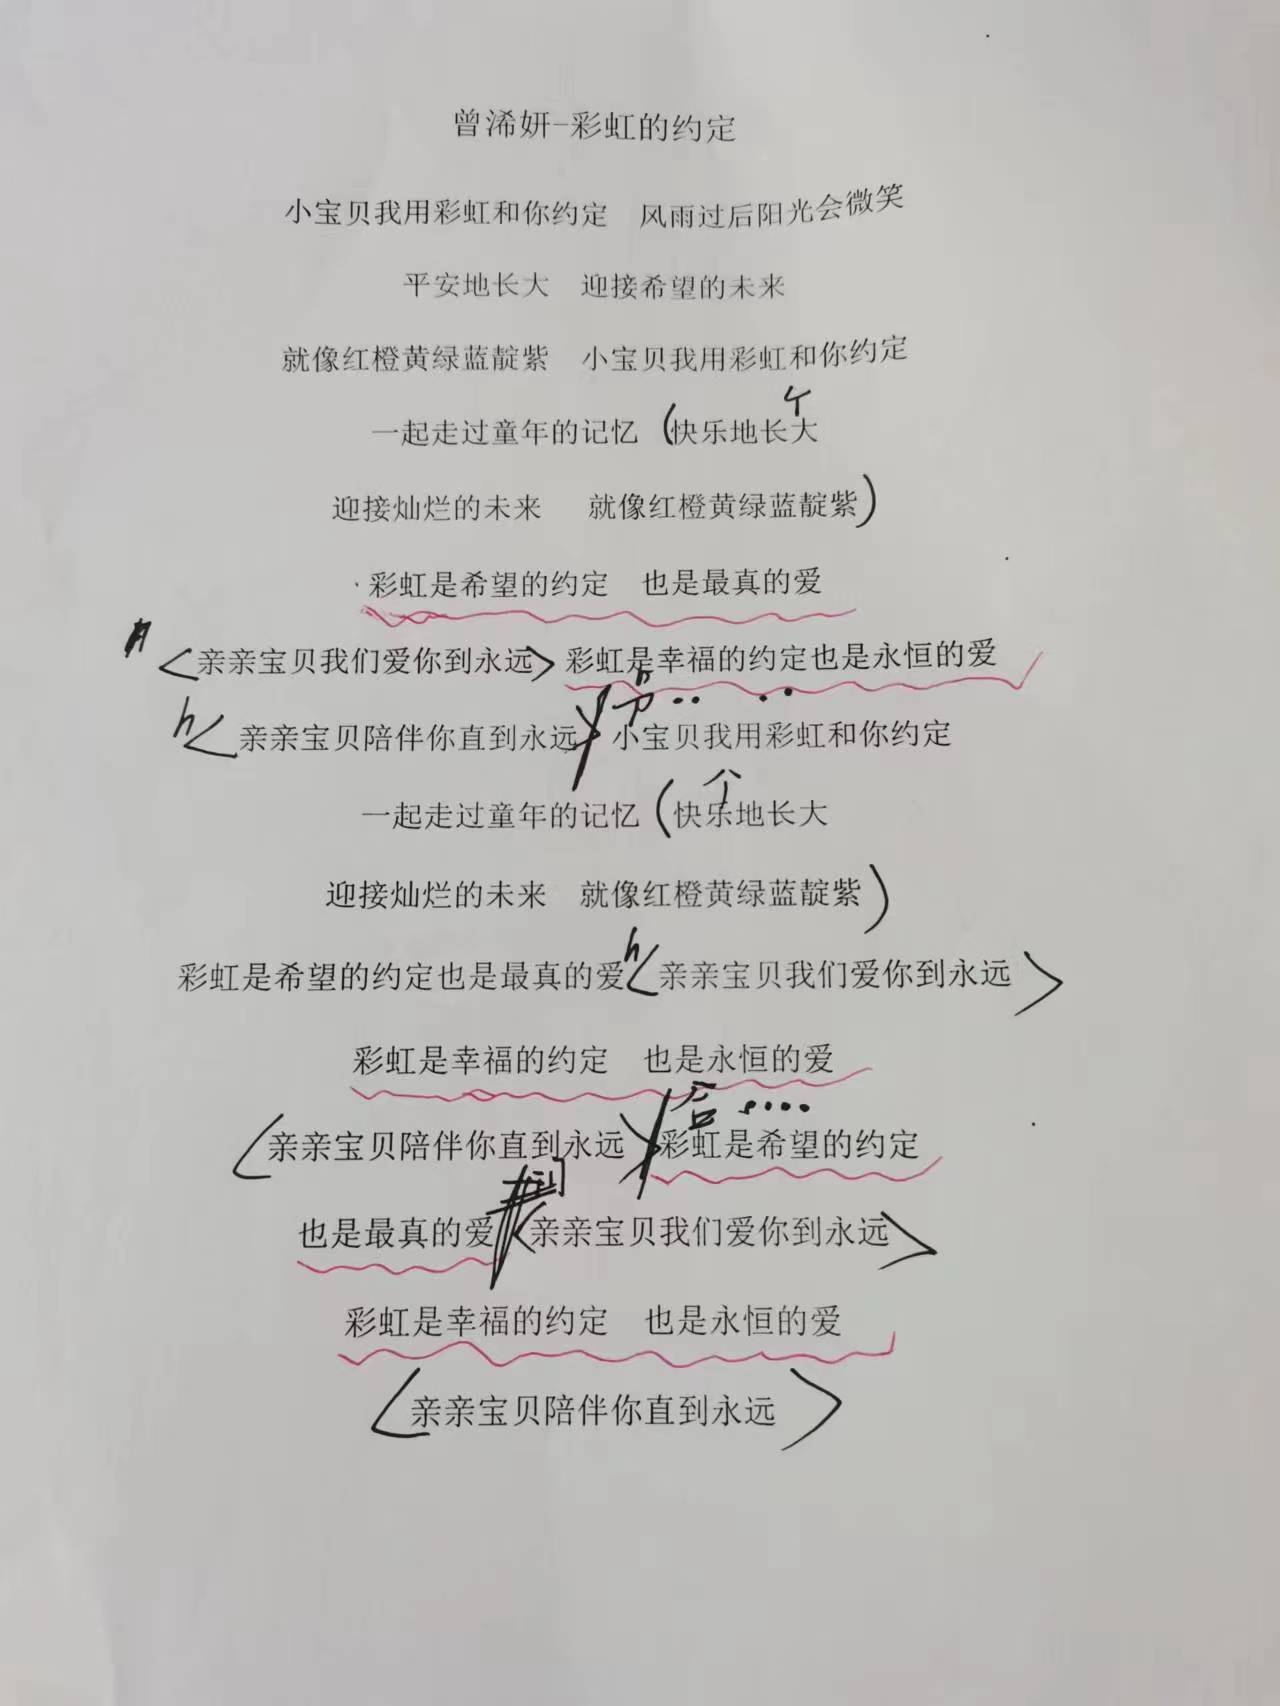 曾浠妍-彩虹的约定
小宝贝我用彩虹和你约定 风雨过后阳光会微笑
平安地长大 迎接希望的未来
就像红橙黄绿蓝靛紫 小宝贝我用彩虹和你约定
个
一起走过童年的记忆 (快乐地长大
迎接灿烂的未来 就像红橙黄绿蓝靛紫)
彩虹是希望的约定 也是最真的爱
<亲亲宝贝我们爱你到永远> 彩虹是幸福的约定也是永恒的爱
h <亲亲宝贝陪伴你直到永远> 小宝贝我用彩虹和你约定
个
一起走过童年的记忆 (快乐地长大
迎接灿烂的未来 就像红橙黄绿蓝靛紫)
彩虹是希望的约定也是最真的爱 h <亲亲宝贝我们爱你到永远>
彩虹是幸福的约定 也是永恒的爱
合 ....
<亲亲宝贝陪伴你直到永远> 彩虹是希望的约定
也是最真的爱 <亲亲宝贝我们爱你到永远>
彩虹是幸福的约定 也是永恒的爱
<亲亲宝贝陪伴你直到永远>